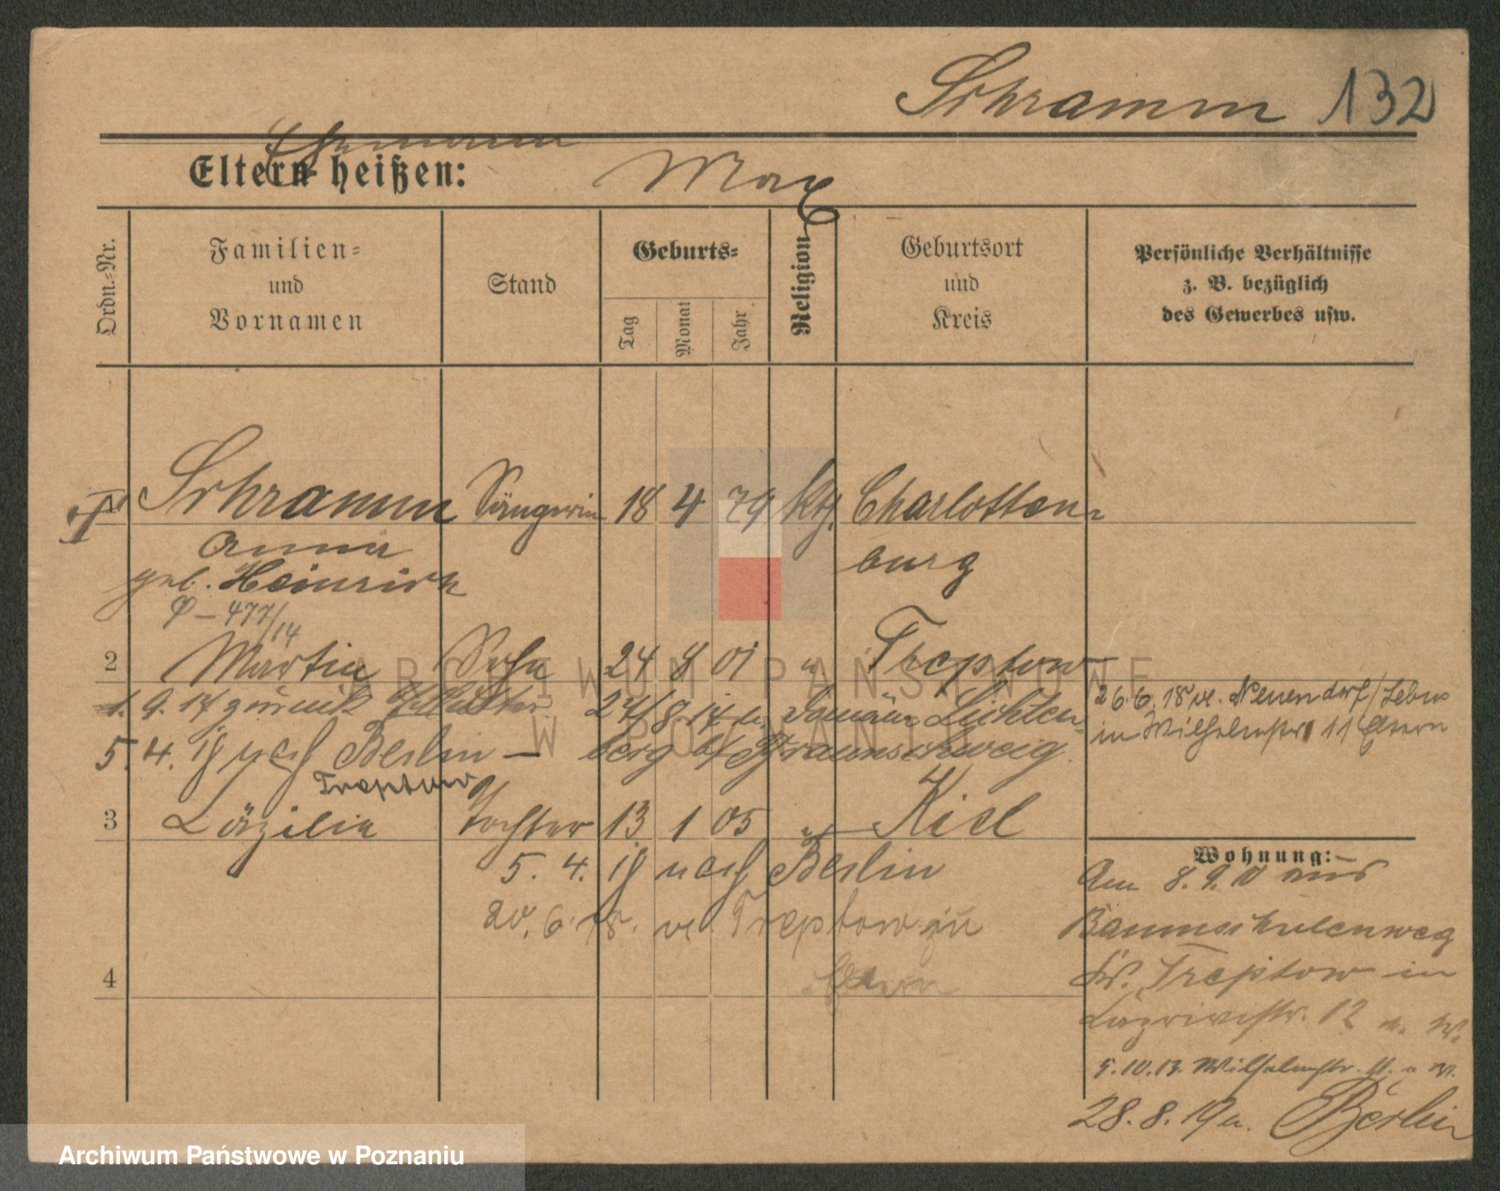 Schramm 132
Ehemann
Eltern heißen: Max
Ordn.-Nr.
Familien-
und
Vornamen
Stand
Geburts-
Tag
Monat
Jahr
Religion
Geburtsort
und
Kreis
Persönliche Verhältnisse
z. B. bezüglich
des Gewerbes usw.
Schramm Sängerin 18 4 79 kth. Charlotten-
Anna burg
geb. Heinrich
477/14
2 Martin Sohn 24 8 01 " Treptow
1.9.14 zurück Mutter 24/8 14 n. Domäne Lichten-
5.4. nach Berlin — berg b/ Braunschweig.
Treptow
26.6.18 v. Neuendorf/Lebus
in Wilhelmstr 11 Eltern
3 Cäzilie Tochter 13 1 05 " Kiel
5. 4. nach Berlin
20.6.18. v. Treptow zu
Eltern
4
Wohnung:
Am 8.9.10 aus
Baumschulenweg
Kr. Treptow in
12
5.10.13. Wilhelmstr. 11.
28.8.19 n. Berlin
ARCHIWUM PAŃSTWOWE
W POZNANIU
Archiwum Państwowe w Poznaniu